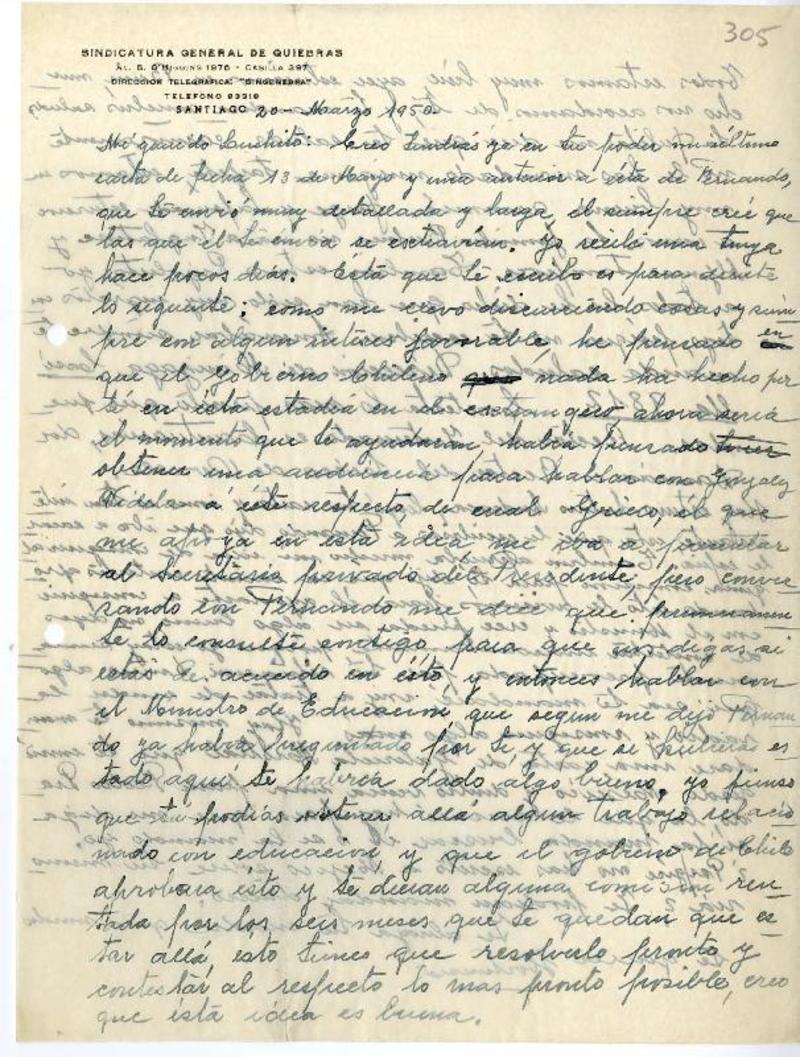 305
SINDICATURA GENERAL DE QUIEBRAS
AV. B. O'HIGGINS 1976 - CASILLA 397
DIRECCION TELEGRAFICA: "SINGENEBRA"
TELEFONO 83310
SANTIAGO 20 - Marzo 1950.
Mi querido Luchito: Creo tendrás ya en tu poder mi última
carta de fecha 13 de Marzo y una anterior a ésta de Fernando,
que te envió muy detallada y larga, él siempre cree que
las que él te envia se estravian. Yo recibí una tuya
hace pocos dias. Esta que te escribo es para decirte
lo siguiente: como me llevo discurriendo cosas y siem
pre con algun interes favorable, he pensado en
que el Gobierno Chileno que nada ha hecho por
ti en ésta estadía en el estrangero, ahora seria
el momento que te ayudaran, habia pensado
obtener una audiencia para hablar con Gonzalez
Videla a éste respecto, de cual Grieco, él que
me apoya en esta idea me iva a presentar
al Secretario privado del Presidente, pero conver
sando con Fernando me dice que primeramen
te lo consulte contigo para que nos digas si
estás de acuerdo en ésto y entonces hablar con
el Ministro de Educación, que segun me dijo Fernan
do ya habia preguntado por ti, y que si hubieras es
tado aquí te habrea dado algo bueno, yo pienso
que tu podias obtener allá algun trabajo relacio
nado con educación, y que el gobierno de Chile
aprobara ésto y te dieran alguna comisión ren
tada por los seis meses que te quedan que es
tar allá, esto tienes que resolverlo pronto y
contestar al respecto lo mas pronto posible, creo
que ésta idea es buena.